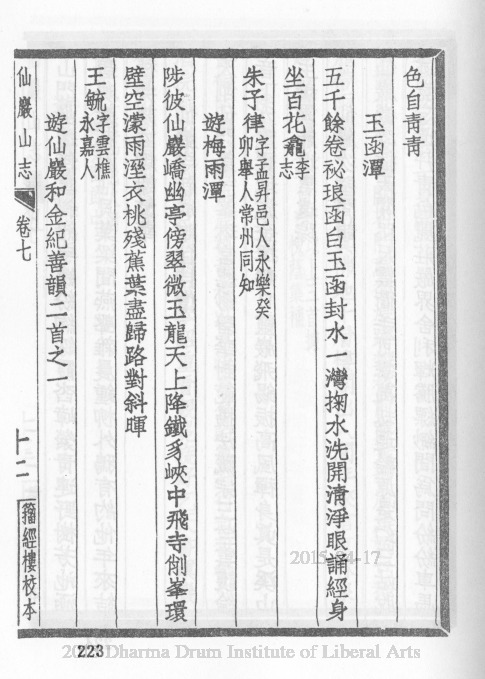 色自青青
玉函潭
五千餘卷祕琅函白玉函封水一灣掬水洗開清淨眼誦經身
坐百花龕李志
朱子律字孟昇邑人永樂癸卯舉人常州同知
遊梅雨潭
陟彼仙巖嶠幽亭傍翠微玉龍天上降鐵豸峽中飛寺削峯環
壁空濛雨溼衣桃殘蕉葉盡歸路對斜暉
王毓字雲樵永嘉人
遊仙巖和金紀善韻二首之一
仙巖山志 卷七 十二 籀經樓校本
223
2015-04-17
Dharma Drum Institute of Liberal Arts